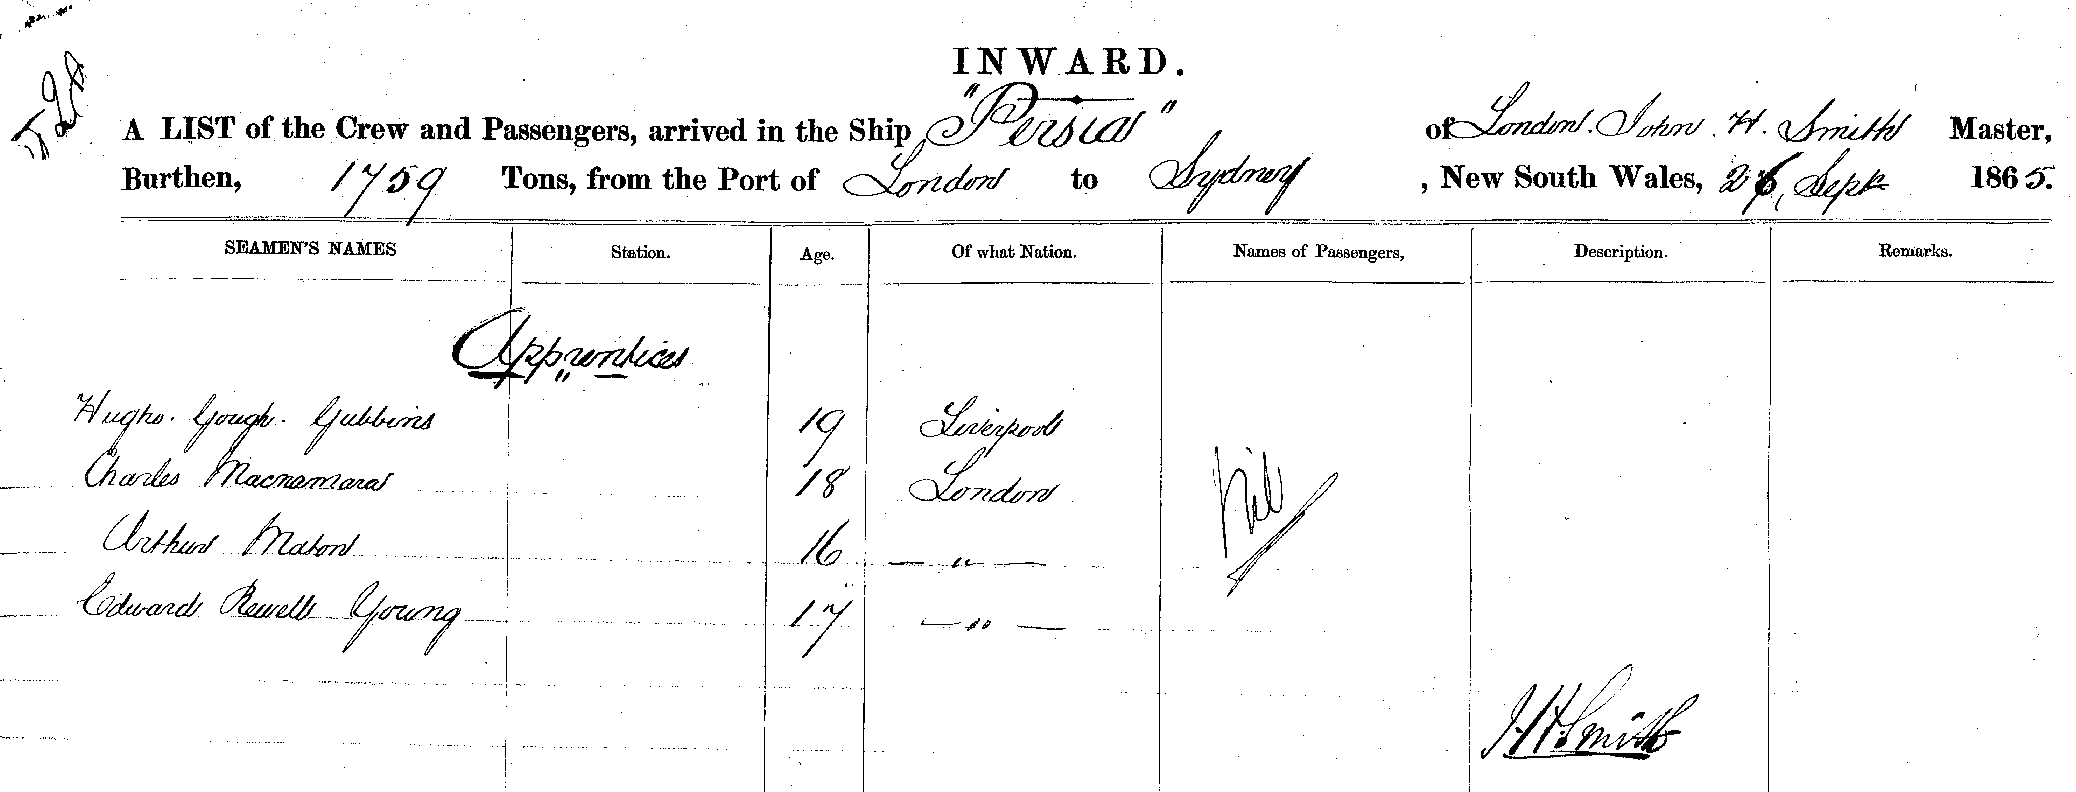 INWARD.
A LIST of the Crew and Passengers, arrived in the Ship "Persia" of London. John H. Smith Master,
Burthen, 1759 Tons, from the Port of London to Sydney, New South Wales, 26, Sept 1865.
SEAMEN'S NAMES Station. Age. Of what Nation. Names of Passengers, Description. Remarks.
Apprentices
Hugh. Gough. Gubbins 19 Liverpool
Charles Macnamara 18 London
Nil
Arthur 16 — " —
Edward Rewell Young 17 — " —
J H Smith